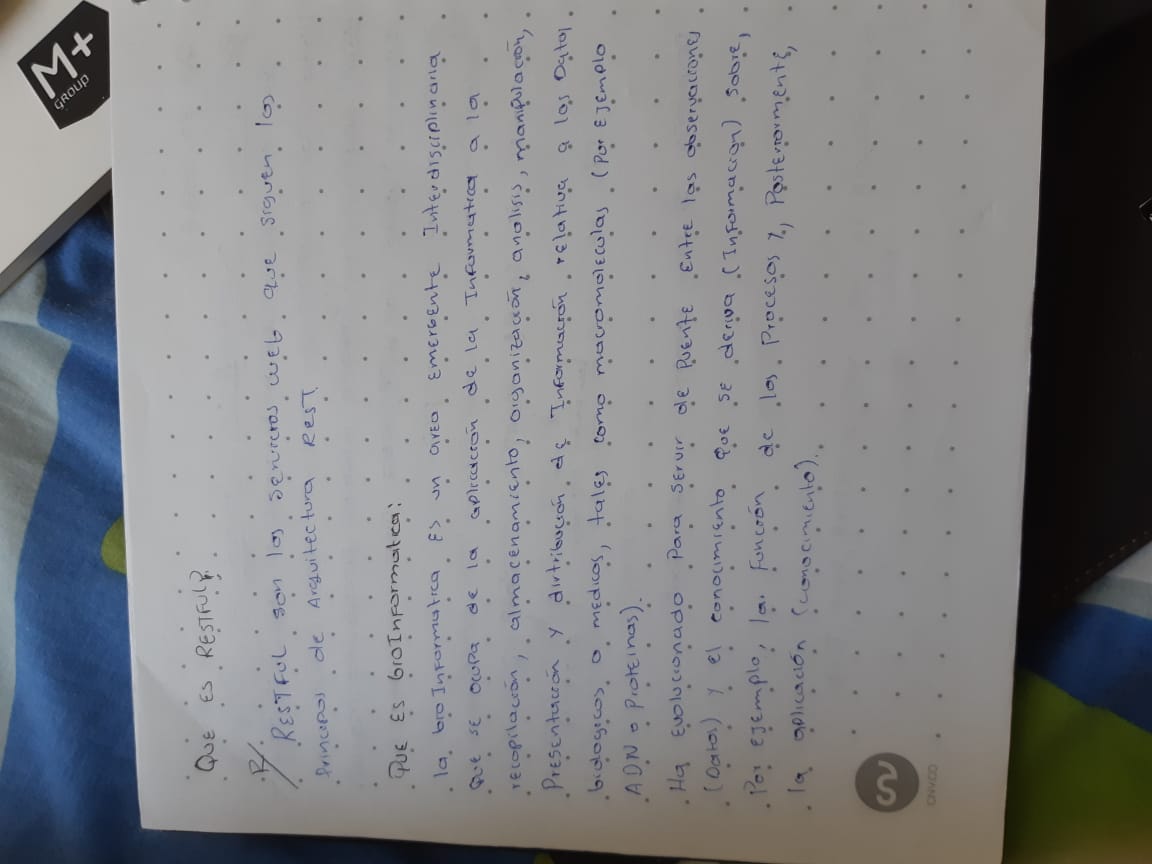 QUE ES RESTFUL?
R/ RESTFUL son los servicios web que siguen los
Principos de Arquitectura REST.
QUE ES bioInformatica:
la bioInformatica ES un area emergente Interdisciplinaria
que se ocupa de la aplicación de la Informatica a la
recopilación, almacenamiento, organización, analisis, manipulación,
Presentación y dirtribución de Información relativa a los Datos
biologicos o medicos, tales como macromoleculas (Por Ejemplo
ADN o Proteinas).
Ha Evolucionado Para servir de Puente Entre las observaciones
(Datos) y el conocimiento que se deriva (Informacion) sobre,
Por ejemplo, la función de los Procesos y, Posteriormente,
la aplicación (conocimiento).
CANVCO
M+
GROUP